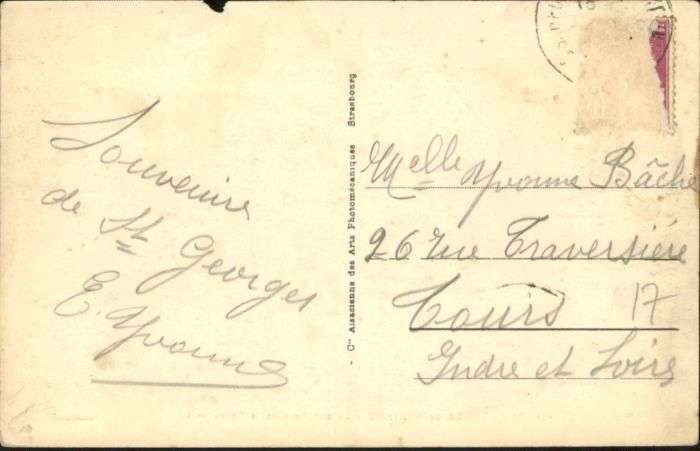 Souvenire
de St Georges
E Yvonne
- Cie Alsacienne des Arts Photomécaniques Strasbourg
Melle Yvonne Bâche
26 rue Traversière
Tours 17
Indre et Loire